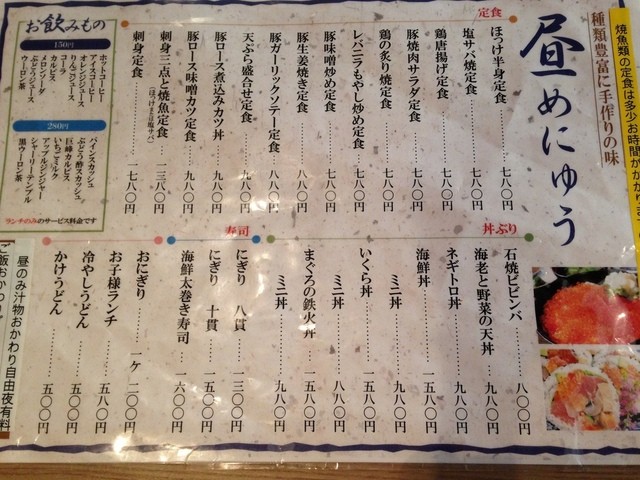 焼魚類の定食は多少お時間がかかり
種類豊富に手作りの味
昼めにゅう
定食
ほっけ半身定食………七八〇円
塩サバ焼定食………七八〇円
鶏唐揚げ定食………七八〇円
豚焼肉サラダ定食………七八〇円
鶏の炙り焼定食………七八〇円
レバニラもやし炒め定食………七八〇円
豚味噌炒め定食………七八〇円
豚生姜焼き定食………八八〇円
豚ガーリックソテー定食………八八〇円
天ぷら盛合せ定食………九八〇円
豚ロース煮込みカツ丼………九八〇円
豚ロース味噌カツ定食………九八〇円
刺身三点と焼魚定食………一三八〇円
(ほっけまたは塩サバ)
刺身定食………一七八〇円
お飲みもの
150円
ホットコーヒー
アイスコーヒー
オレンジジュース
りんごジュース
コーラ
カルピス
メロンソーダ
ぶどうジュース
ウーロン茶
280円
パインスカッシュ
ぶどう酢スカッシュ
巨峰カルピス
いちごミルク
アップルジンジャー
シャーリーテンプル
黒ウーロン茶
ランチのみのサービス料金です
丼ぶり
石焼ビビンバ………八〇〇円
海老と野菜の天丼………九八〇円
ネギトロ丼………九八〇円
海鮮丼………一五八〇円
ミニ丼………九八〇円
いくら丼………一五八〇円
ミニ丼………八八〇円
まぐろの鉄火丼………一五八〇円
ミニ丼………九八〇円
寿司
にぎり 八貫………一三〇〇円
にぎり 十貫………一五〇〇円
海鮮太巻き寿司………一六〇〇円
おにぎり………一ケ 二〇〇円
お子様ランチ………五〇〇円
冷やしうどん………五〇〇円
かけうどん………五〇〇円
昼のみ汁物おかわり自由夜有料
ご飯おかわり